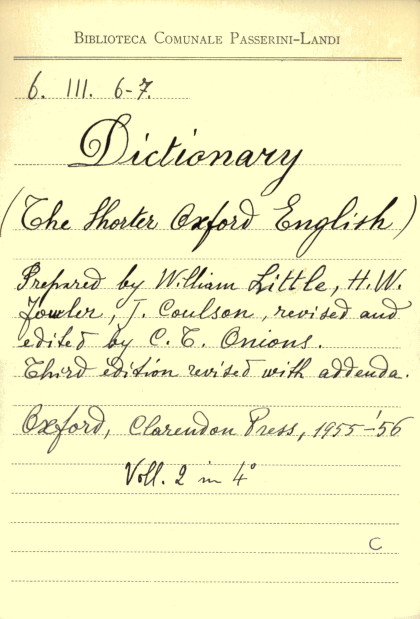 BIBLIOTECA COMUNALE PASSERINI-LANDI
6. III. 6-7.
Dictionary
(The Shorter Oxford English)
Prepared by William Little, H.W.
Fowler, J. Coulson, revised and
edited by C. T. Onions.
Third edition revised with addenda.
Oxford, Clarendon Press, 1955-'56
Voll. 2 in 4°
C